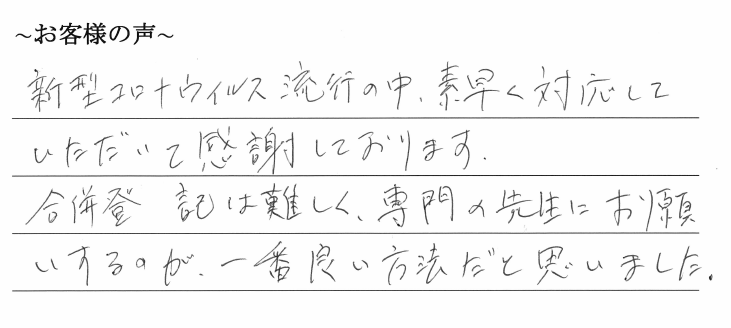 ~お客様の声~
新型コロナウィルス流行の中、素早く対応して
いただいて感謝しております.
合併登記は難しく、専門の先生にお願
いするのが、一番良い方法だと思いました.